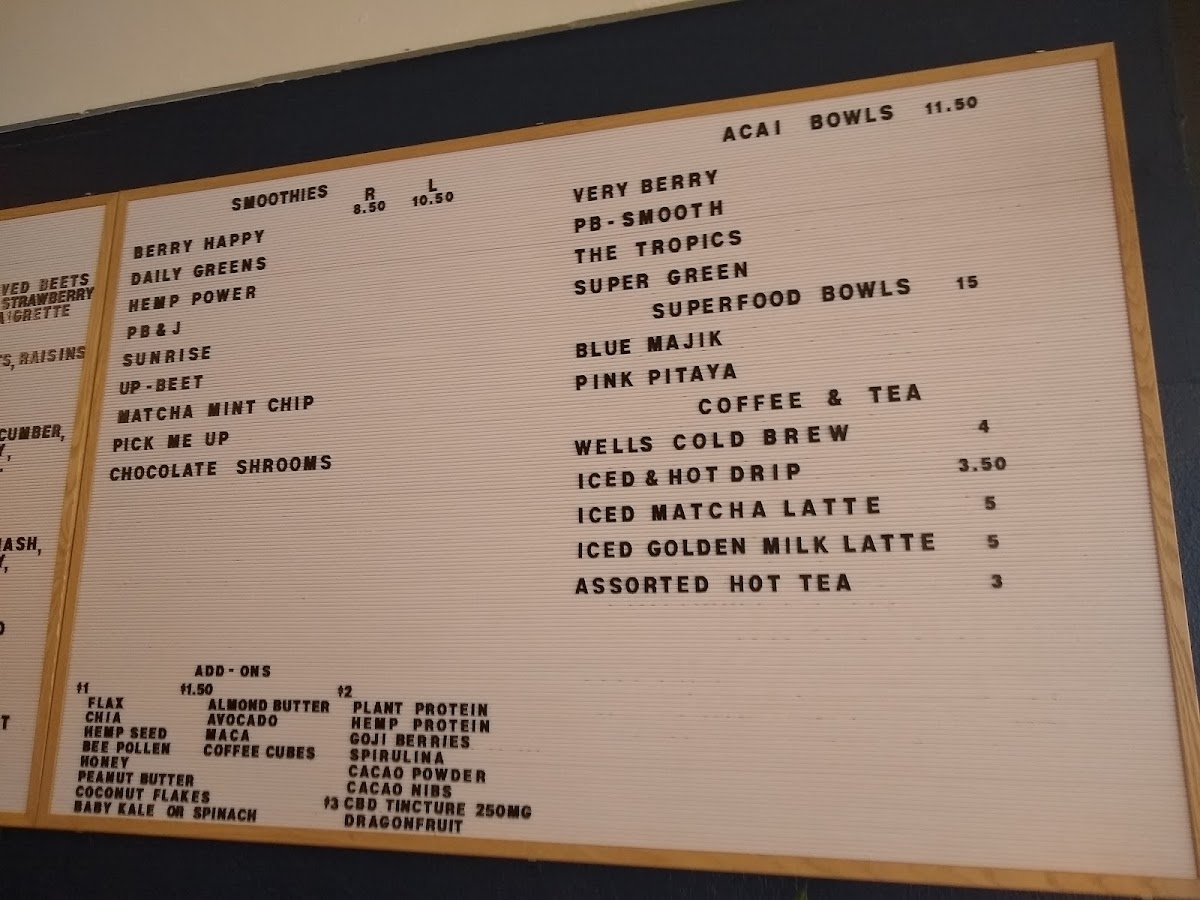 VED BEETS
STRAWBERRY
AIGRETTE
S, RAISINS
CUMBER,
ASH,
SMOOTHIES R L
8.50 10.50
BERRY HAPPY
DAILY GREENS
HEMP POWER
PB & J
SUNRISE
UP-BEET
MATCHA MINT CHIP
PICK ME UP
CHOCOLATE SHROOMS
ADD-ONS
$1
FLAX
CHIA
HEMP SEED
BEE POLLEN
HONEY
PEANUT BUTTER
COCONUT FLAKES
BABY KALE OR SPINACH
$1.50
ALMOND BUTTER
AVOCADO
MACA
COFFEE CUBES
$2
PLANT PROTEIN
HEMP PROTEIN
GOJI BERRIES
SPIRULINA
CACAO POWDER
CACAO NIBS
$3 CBD TINCTURE 250MG
DRAGONFRUIT
ACAI BOWLS 11.50
VERY BERRY
PB-SMOOTH
THE TROPICS
SUPER GREEN
SUPERFOOD BOWLS 15
BLUE MAJIK
PINK PITAYA
COFFEE & TEA
WELLS COLD BREW 4
ICED & HOT DRIP 3.50
ICED MATCHA LATTE 5
ICED GOLDEN MILK LATTE 5
ASSORTED HOT TEA 3